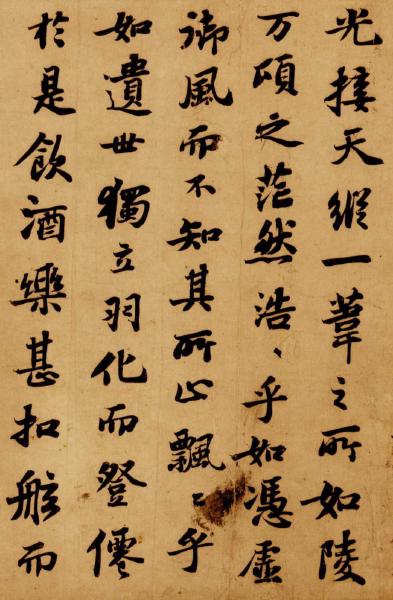 光接天縱一葦之所如陵
万頃之茫然浩〻乎如馮虛
御風而不知其所止飄〻乎
如遺世獨立羽化而登僊
於是飲酒樂甚扣舷而